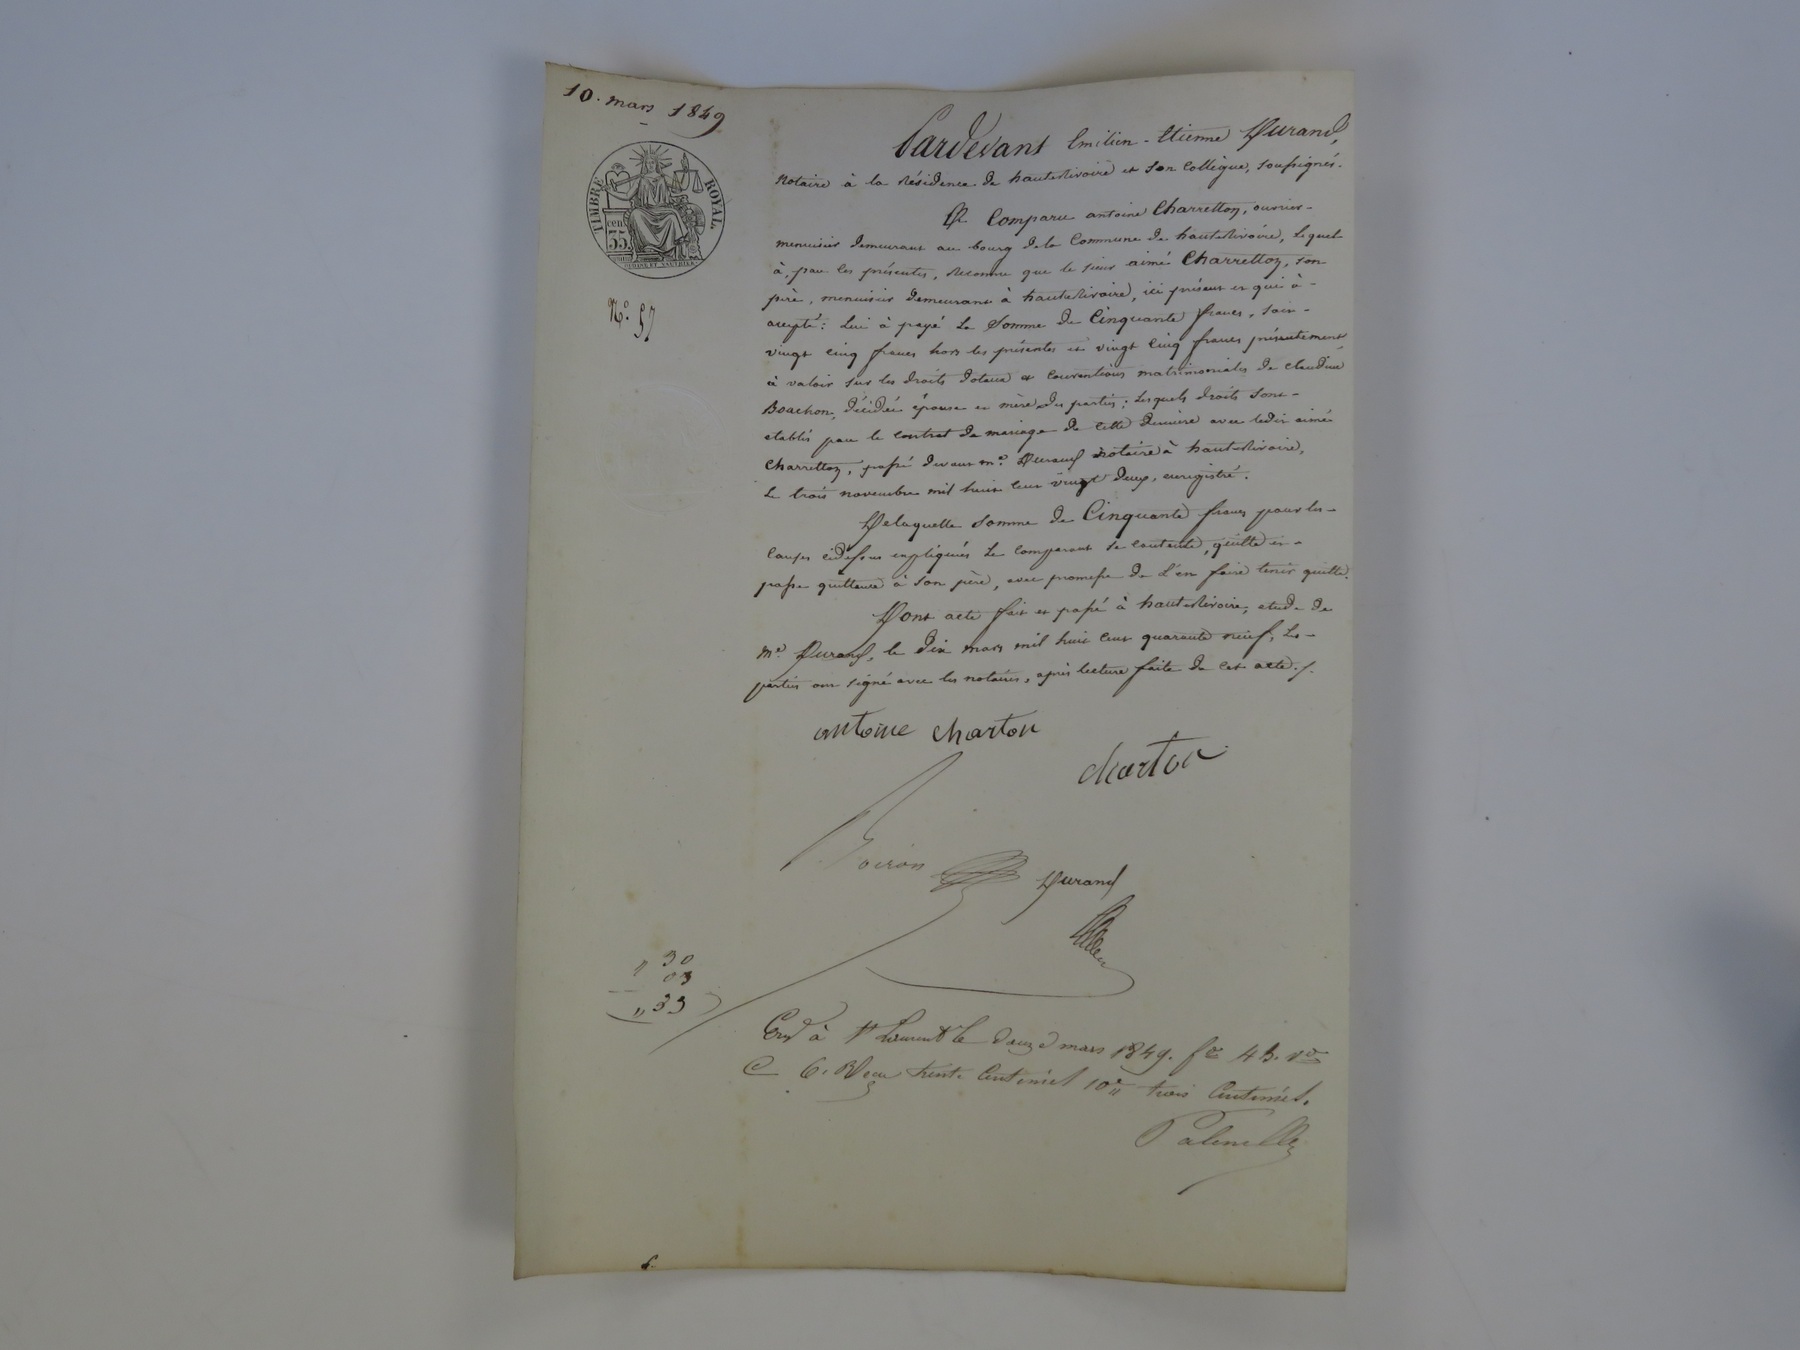 10. mars 1849
TIMBRE ROYAL.
cen.
35
N.o 57
Pardevant Emilien-Etienne Durand,
Notaire à la Résidence de hauteRivoire et son Collègue, soussignés.
A Comparu antoine Charretton, ouvrier-
menuisier demeurant au bourg de la Commune de hauteRivoire, Lequel
à, par les présentes, Reconnu que le sieur aimé Charretton, son
père, menuisier demeurant à hauteRivoire, ici présent et qui à-
accepté: Lui à payé La Somme de Cinquante francs, soit-
vingt cinq francs hors les présentes et vingt Cinq francs présentement
à valoir sur les droits dotaux et Conventions matrimoniales de claudine
Boachon, décédée épouse et mère des parties; Lesquels droits sont-
etablis par le contrat de mariage de Cette dernière avec ledit aimé
Charretton, passé devant me. Durand Notaire à hauteRivoire,
Le trois novembre mil huit Cent vingt Deux, enregistré.
De laquelle Somme de Cinquante francs pour les-
Causes cidessus expliquées Le Comparant se contente, quitte et-
passe quittance à son père, avec promesse de L'en faire tenir quitte.
Dont acte fait et passé à hauteRivoire, etude de
me. Durand, le dix mars mil huit Cent quarante neuf, Les-
parties ont signé avec les notaires, après lecture faite de cet acte./.
antoine charton
charton
Durand
" 30
03
" 33
Enr à St Laurent le douze mars 1849. fo 43. vo
C 6. Reçu trente Centimes 10e trois Centimes.